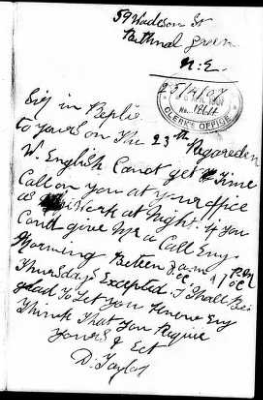 59 Wadeson St
Bethnal Green
N.E.
25/9/07
CLERK'S OFFICE
Sir in Replie
to yours on The 23th Regareden
W. English Canot get Time
Call on you at your office
as Work at Night. if you
Could give Me a Call Eny
Morning Between 7 am 1/PM
Thursdays Excepted. I Shall Be
glad To Let you Know Eny
Think That you Require
Yours & Ect
D. Taylor